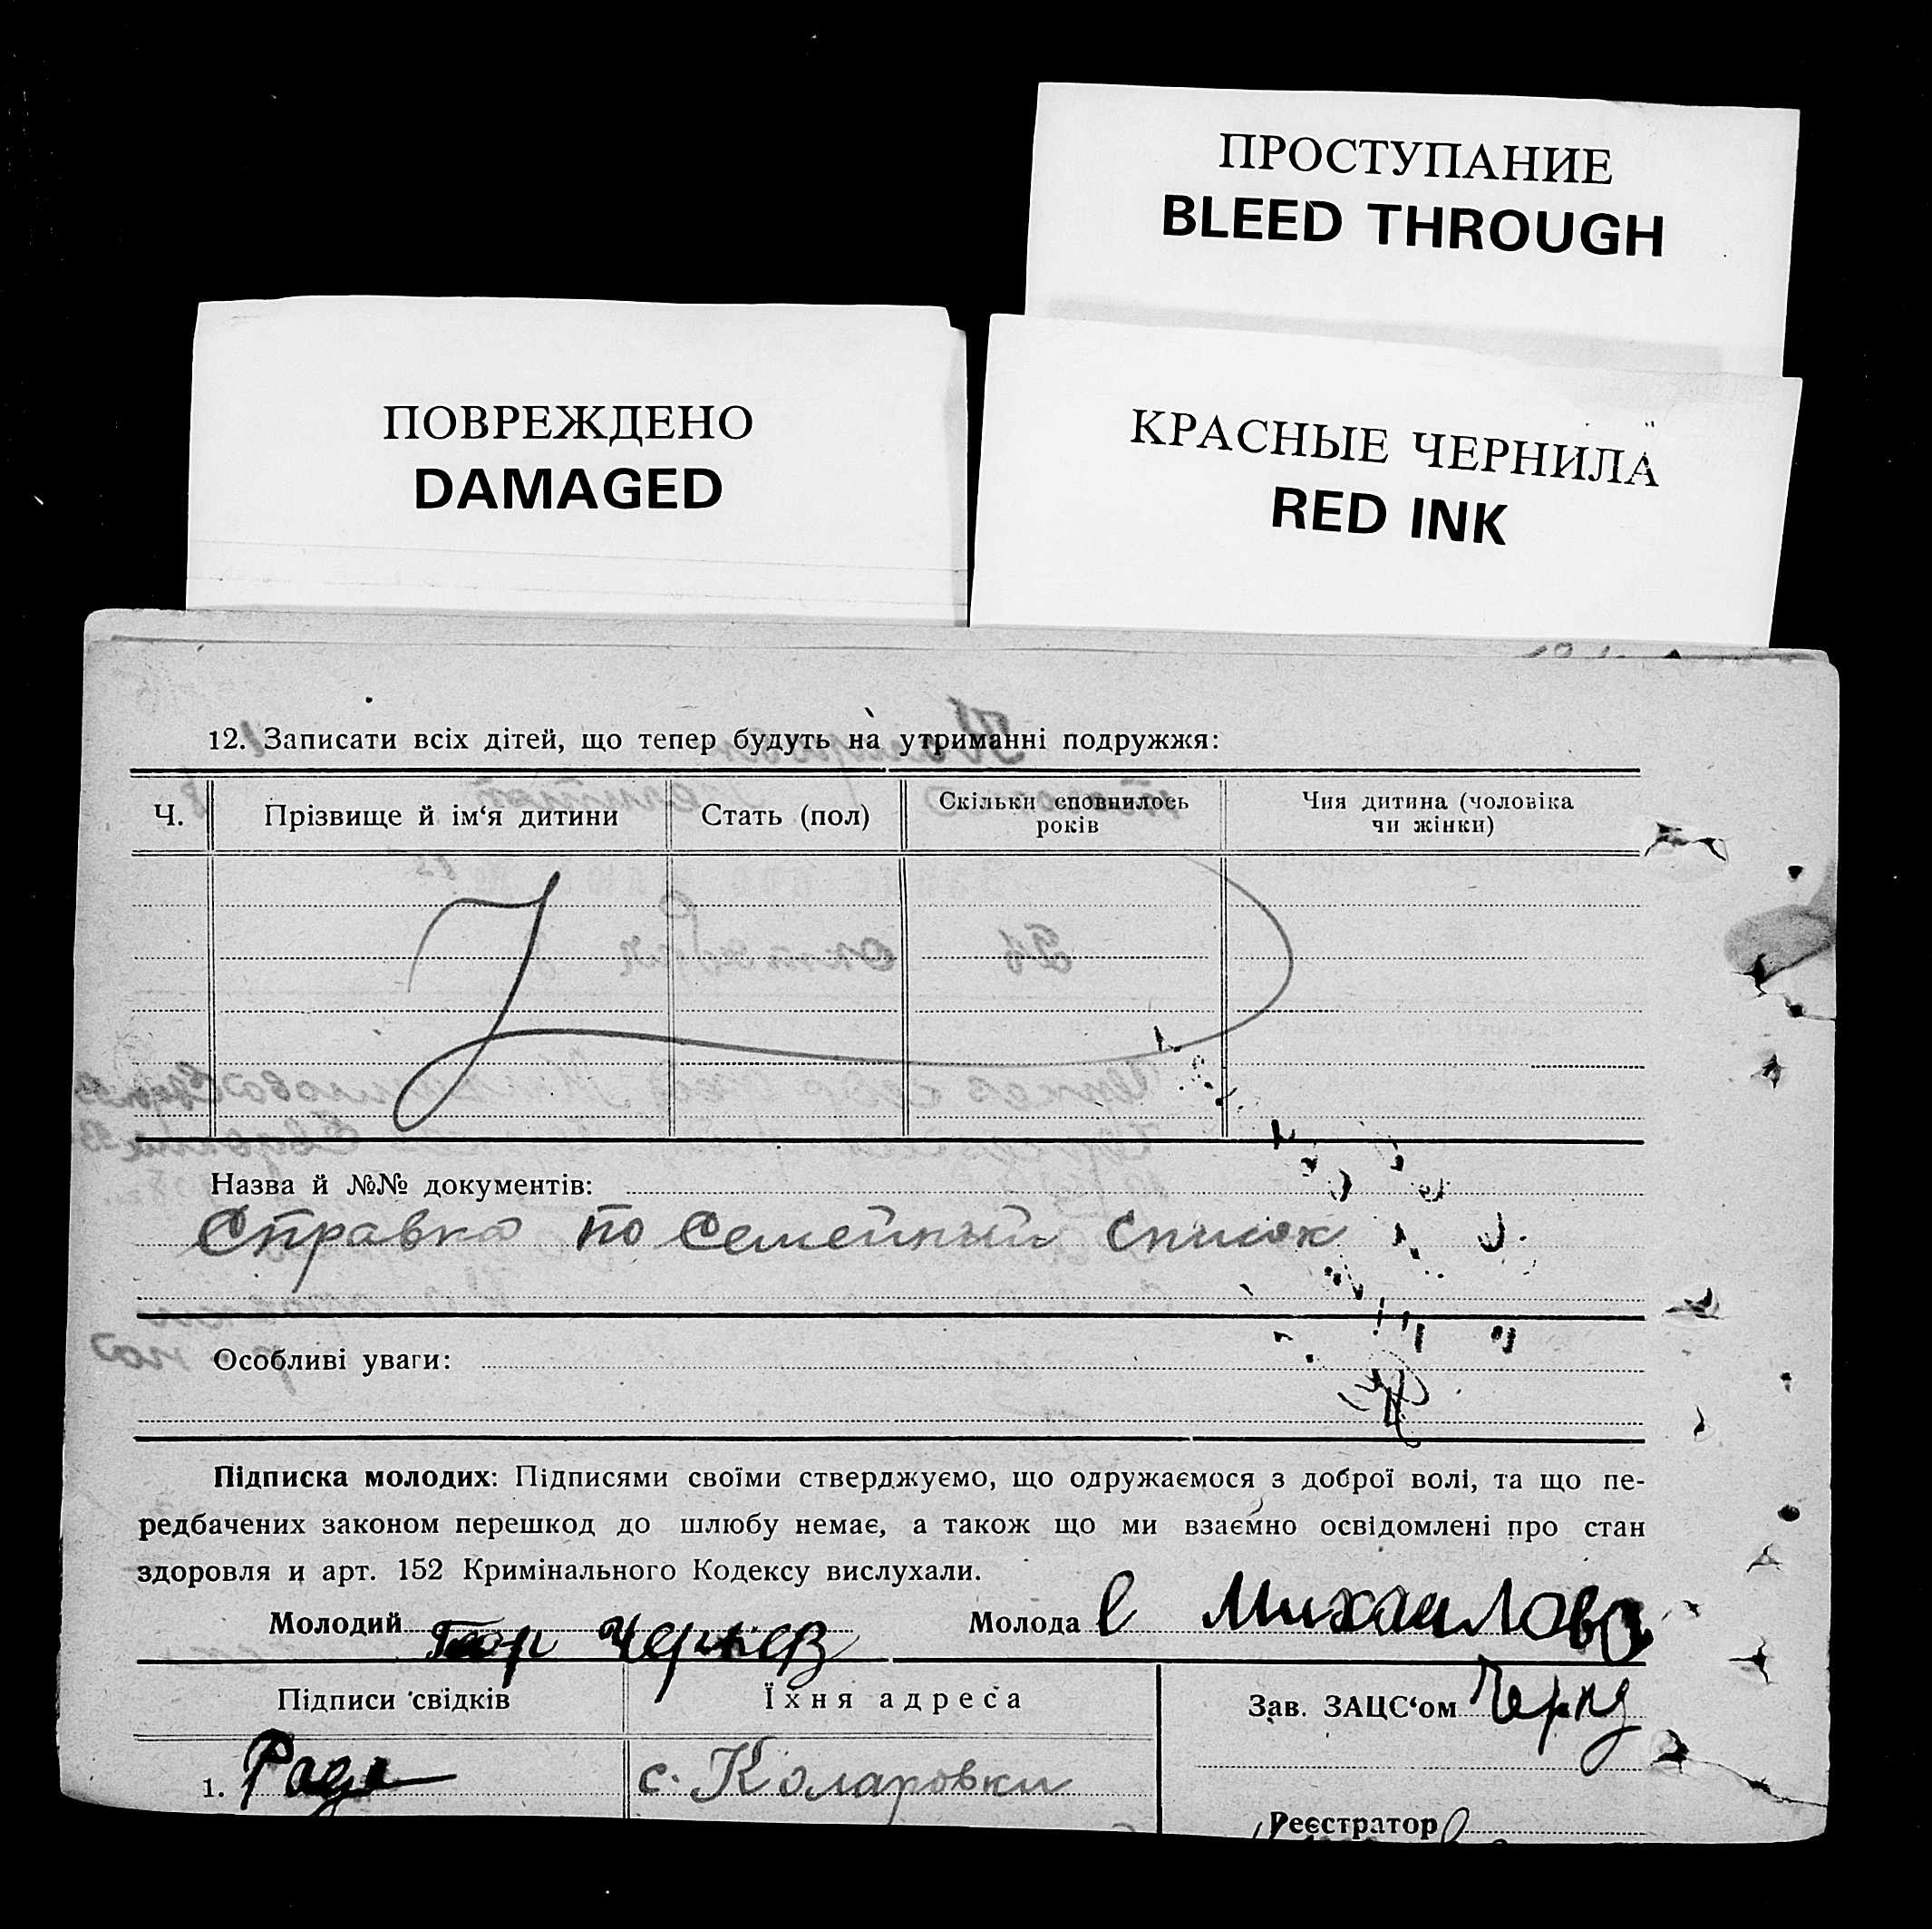 ПРОСТУПАНИЕ
BLEED THROUGH
ПОВРЕЖДЕНО
DAMAGED
КРАСНЫЕ ЧЕРНИЛА
RED INK
12. Записати всіх дітей, що тепер будуть на утриманні подружжя:
Ч.
Прізвище й ім‘я дитини
Стать (пол)
Скільки сповнилось
років
Чия дитина (чоловіка
чи жінки)
Назва й №№ документів:
Справка по семейный список
Особливі уваги:
Підписка молодих: Підписями своїми стверджуємо, що одружаємося з доброї волі, та що пе-
редбачених законом перешкод до шлюбу немає, а також що ми взаємно освідомлені про стан
здоровля и арт. 152 Кримінального Кодексу вислухали.
Молодий Геор Чернев Молода Е Михаилова
Підписи свідків
Їхня адреса
Зав. ЗАЦС‘ом
1.
с. Коларовки
Реєстратор